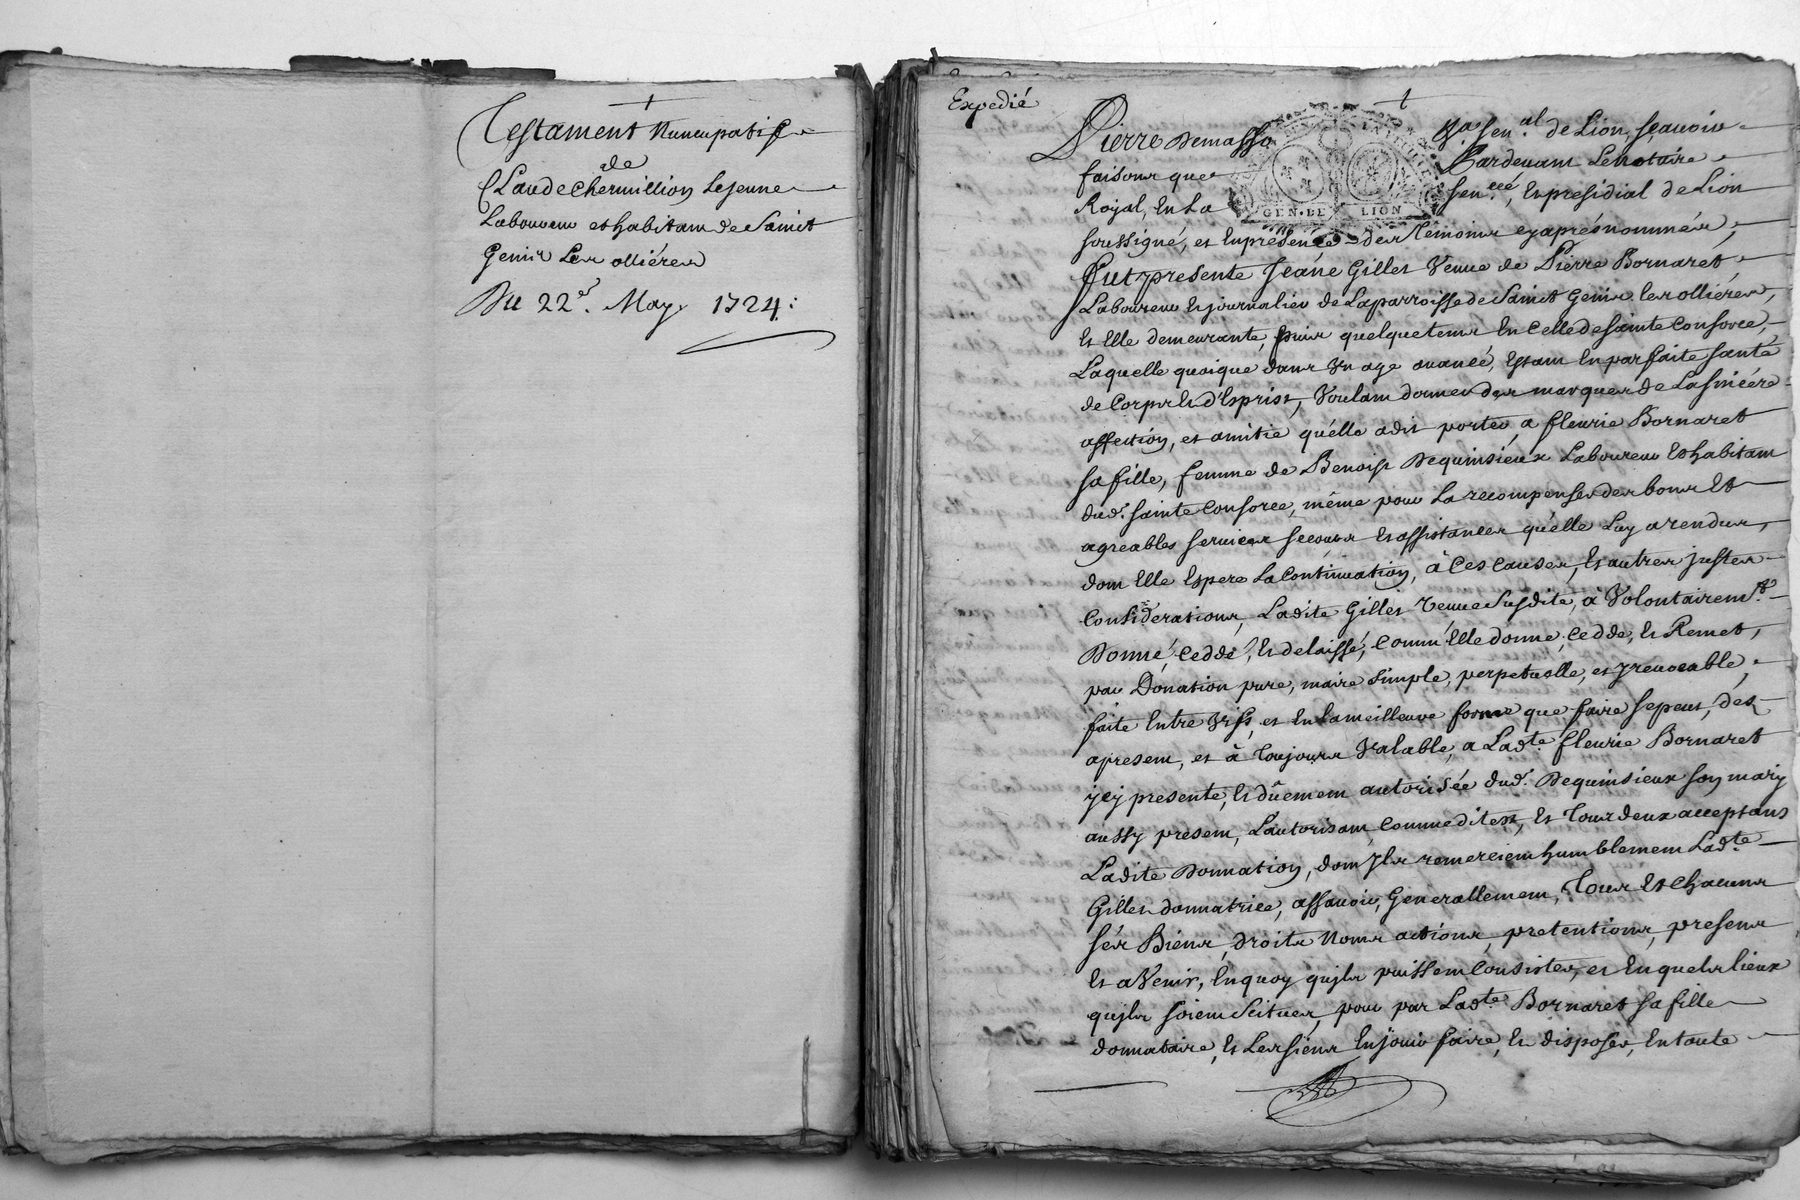 Testament Nuncupatif
de
Claude Chermillion Le jeune
Laboureur et habitant de Sainct
Genis Les ollières
Du 22e. May 1724:
Expedié
Pierre Demasso
Gen.al de Lion, sçavoir
faisons que
Pardevant Le Notaire
Royal, En La
Sen.ceé, Et presidial de Lion
GEN. DE LION
soussigné, et En presence des Témoins cy aprés nommés,
fut presente Jeane Gilles Veuve de Pierre Bornaret
Laboureur Et journalier de La parroisse de Sainct Genis les ollières,
Et Elle demeurante, puis quelque tems En Celle de Sainte Consorce,
Laquelle quoique dans Un age avancé, Estant En parfaite santé
de Corps Et d'Esprist, Voulant donner des marques de La sincére
affection, et amitie qu'élle a dit porter, a fleurie Bornaret
sa fille, femme de Benoist Dequinsieux Laboureur Et habitant
dud. sainte Consorce, même pour La recompenser des bons Et
agreables services secours Et assistances qu'elle Luy a rendus,
dont Elle Espere La Continuation, à Ces Causes, Et autres justes
Considerations, Ladite Gilles Veuve Susdite, à Volontairemt.
Donné, Ceddé, Et delaissé, Comm'Elle donne, Cedde, Et Remet,
par Donation pure, maire simple, perpetuelle, et jrrevocable,
faite Entre Vifs, et En La meilleure forme que faire se peut, dez
a present, et à Toujours Valable, a Ladte. fleurie Bornaret
jcy presente, Et dûement autorisée dud. Dequinsieux son mary
aussy present, L'autorisant Comme dit est, Et Tous deux acceptans
Ladite Donnation, dont jls remercient humblement Ladte.
Gilles donnatrice, assavoir, Generallement, Tous Et Chacuns
sés Biens, droits Noms actions, pretentions, presens
Et a Venir, En quoy qu'jls puissent Consister, et En quels lieux
qu'jls soient Scitués, pour par Ladte. Bornaret sa fille
donnataire, Et Les siens En joüir faire, Et disposer, En toute